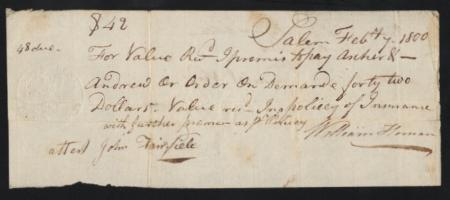 $42
Salem Feby 1800
48 due
For Value Recd I promis to pay Archer &
Andrew Or Order On Demand forty two
Dollars Value recd In a policey of Insurance
with further premium as pr Policey
William Homan
attest John Fairfield